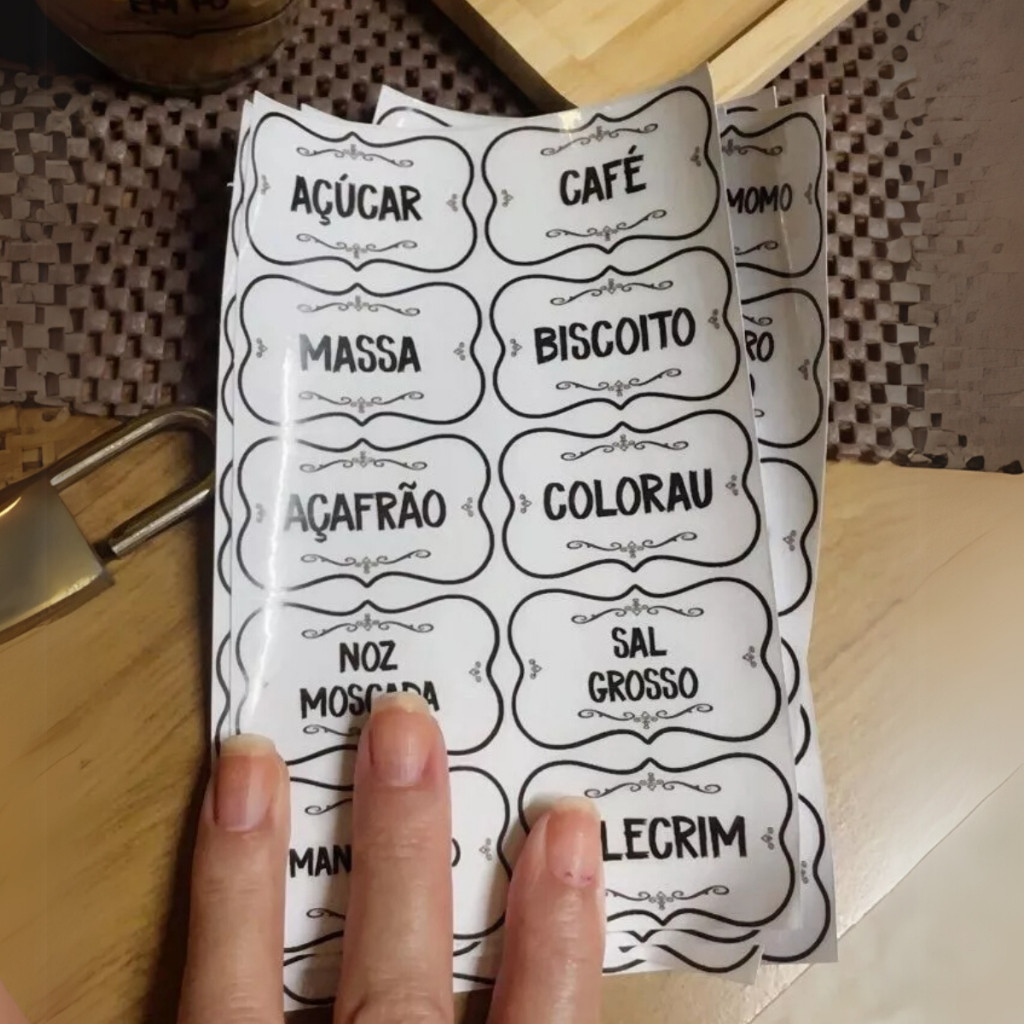 EM PÓ
AÇÚCAR
CAFÉ
MOMO
MASSA
BISCOITO
RO
AÇAFRÃO
COLORAU
NOZ
MOSCADA
SAL
GROSSO
MAN
O
LECRIM